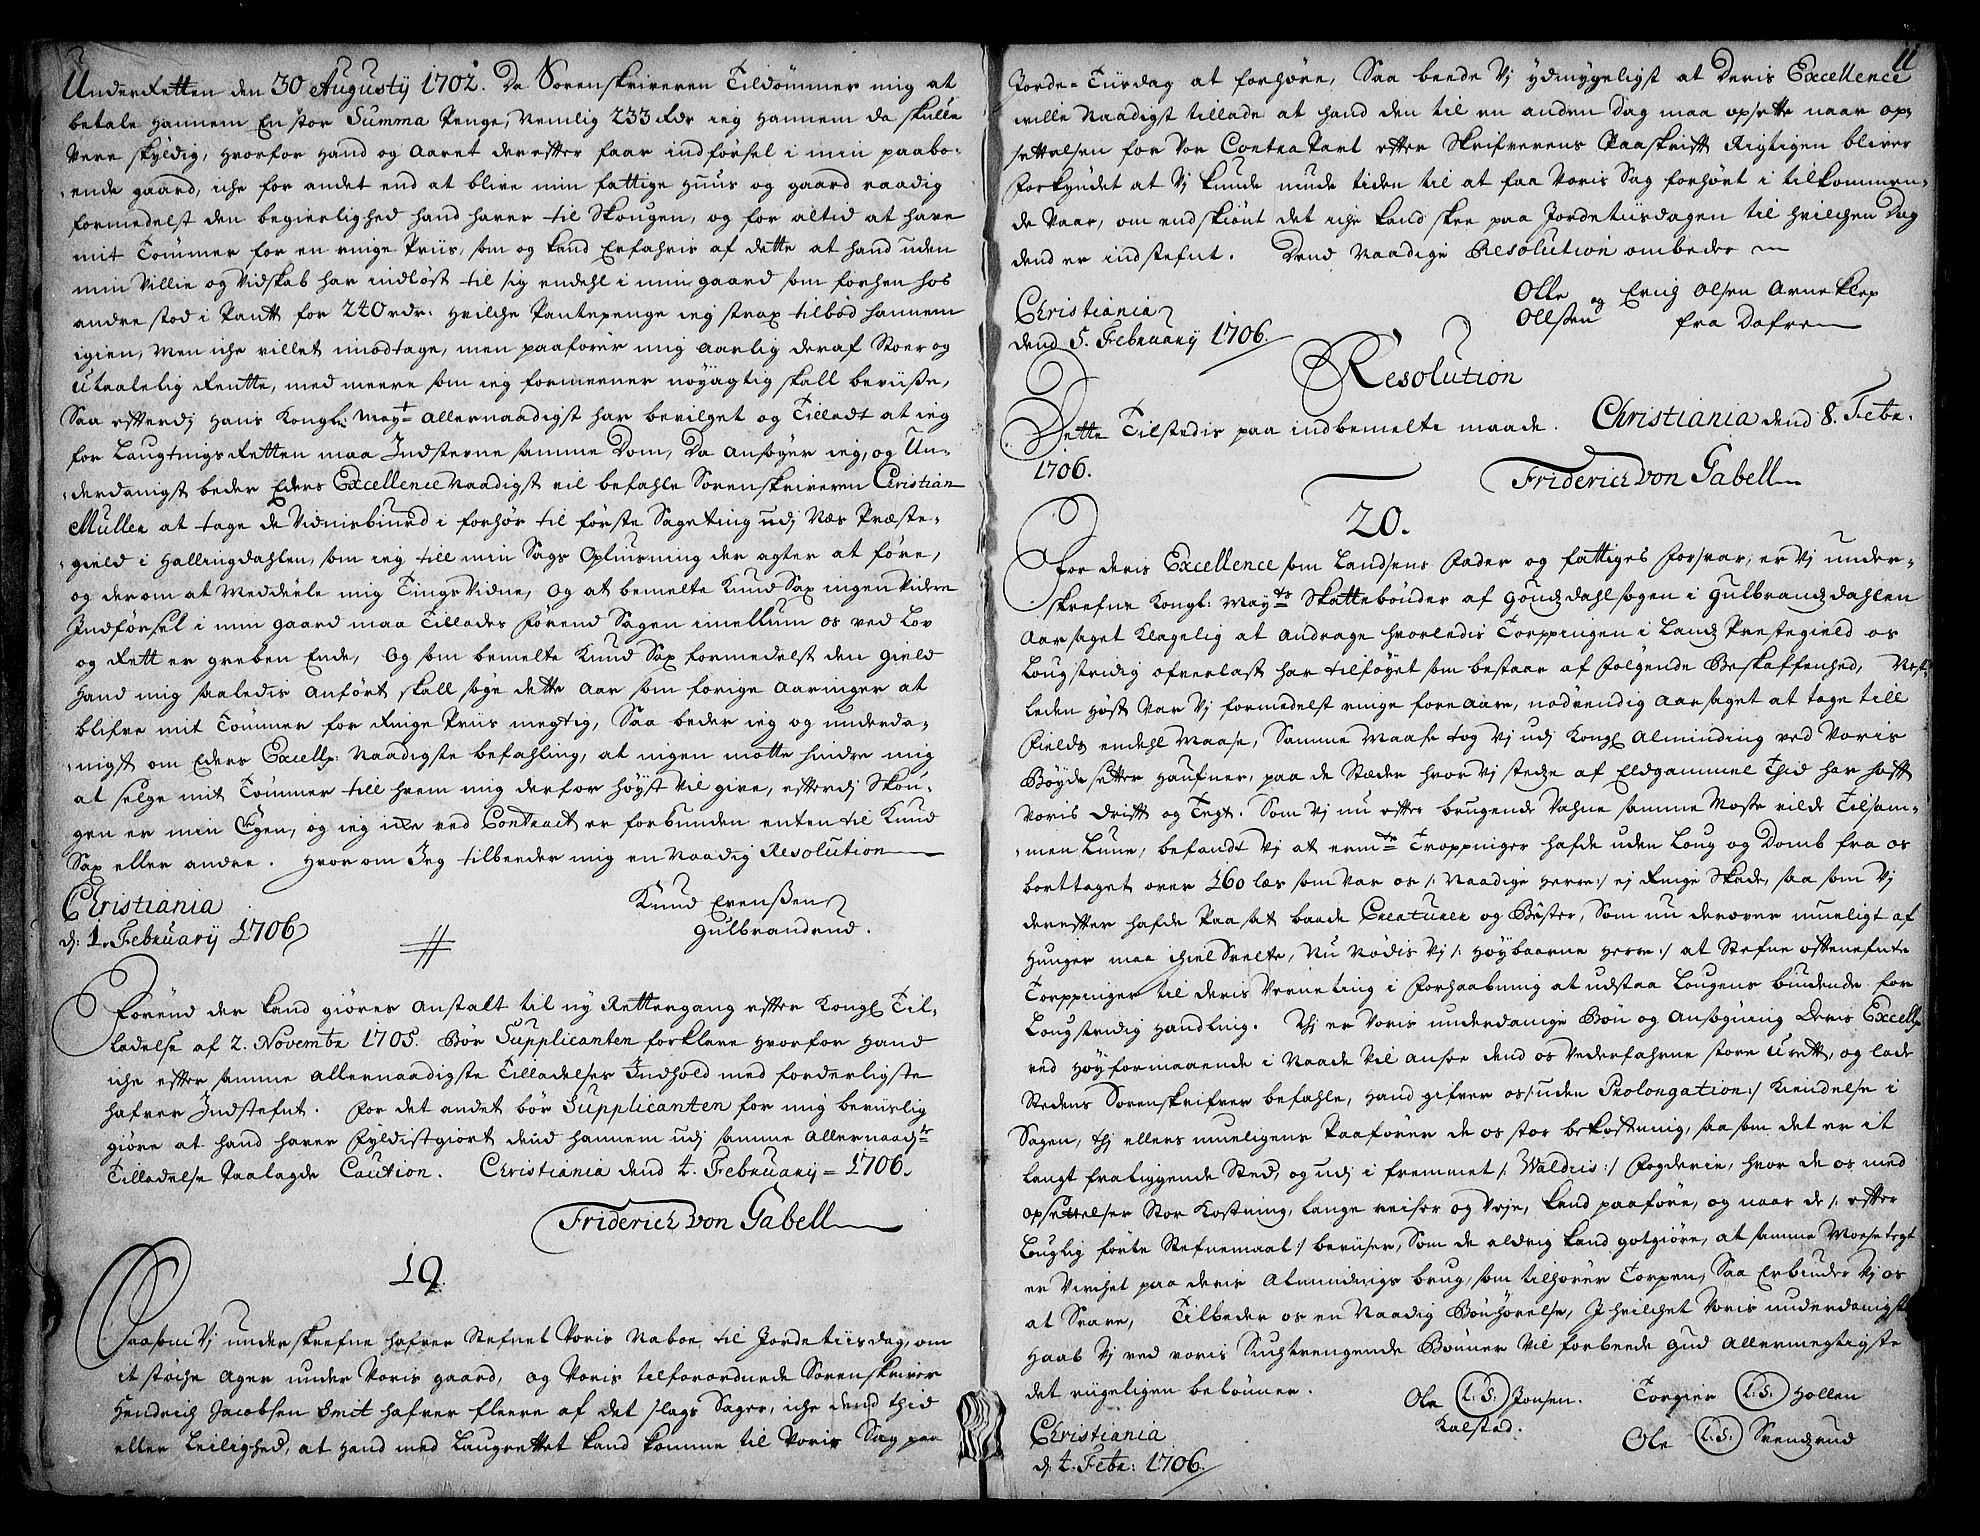 UnderRetten den 30 Augustij 1702. Da Sorenskriveren Tildømmer mig at
betale Hannem En stor Summa Penge, Nemlig 233 Rdr ieg Hannem da skulle
Være skyldig, hvorfor Hand og Aaret derefter faar indførsel i min paabo-
ende gaard, iche for andet end at blive min fattige Huus og gaard raadig
formedelst den begierlighed hand haver til Skougen, og for altid at have
mit Tømmer for en ringe Priis, som og kand Erfahris af dette at hand uden
min Villie og Vidskab har indløst til sig endehl i min gaard som forhen hos
andre stod i Pantt for 240 rdr. Hvilche Pantepenge ieg strax tilbød hannem
igien, Men iche villet imodtage, men paafører mig Aarlig deraf Stoer og
Utaalelig Rentte, med meere som ieg formeener nøyagtig skall beviiße,
Saa efterdj Hans Kongl: May:t allernaadigst har bevilget og Tilladt at ieg
for LaugtingsRetten maa Indstevne samme Dom, Da ansøger ieg, og Un-
derdanigst beder Eders Excellence Naadigst vil befahle Sorenskriveren Christian
Müller at tage de Vidnisbiurd i forhør til første Sageting udj Næs Præste-
gield i Hallingdahlen, som ieg till min Sags Opliusning der agter at føre,
og derom at Meddeele mig TingsVidne, Og at bemelte Knud Sax ingen videre
Indførsel i min gaard maa Tillades Førend Sagen imellum os ved Lov
og Rett er greben Ende, Og som bemelte Knud Sax formedelst den gield
Hand mig saaledis Anført skall søge dette Aar som forige Aaringer at
blifve mit Tømmer for Ringe Priis megtig, Saa beder ieg og underda-
nigst om Eders Excell: Naadigste befahling, at ingen motte hindre mig
at selge mit Tømmer till hvem mig derfor høyst vil give, efterdj Skou-
gen er min Egen, og ieg icke ved Contract er forbunden enten til Knud
Sax eller andre. Hvorom Jeg tilbeeder mig en Naadig Resolution
Christiania
d: 1. Februarij 1706
Knud Evenßen
Gulbrandrud.
Førend der kand giøres Anstalt til ny Rettergang efter Kongl Til-
ladelse af 2. Novembr 1705. Bør Supplicanten forklare Hvorfor Hand
iche efter samme allernaadigste Tilladelses Indhold med forderligste
hafver Indstefnt. For det andet bør Supplicanten for mig beviislig
giøre at hand haver Fyldistgiort dend hannem udj samme Allernaadste
Tilladelse Paalagde Caution. Christiania dend 4. Februarij 1706.
Friderich von Gabell
19.
Saasom Vj underskrefne hafver Stefnet Voris Naboe til Jordetiisdag, om
it støche Ager under Voris gaard, og Voris tilforordnede Sorenskriver
Hendrich Jacobsen Smit hafver fleere af det slags Sager, iche dend thid
eller Leilighed, at Hand med Laugrettet kand komme til Voris Sag paa
11
Jorde-Tiisdag at forhøre, Saa beede Vj ydmygeligst at Deris Excellence
wille Naadigst tillade at hand den til en anden Dag maa opsette naar op-
settelsen for Vor ContraPart efter Skrifverens Paaskrift Rigtigen bliver
Forkyndet at Vj kunde mude tiden til at faa Voris Sag forhørt i tilkommen-
de Vaar, om endskiønt det iche kand skee paa Jordetiisdagen til hvilchen Dag
dend er indstefnt. Dend Naadige Resolution ombeder
Christiania
dend 5. Februarij 1706.
Olle Ollsen og Erich Olsen Arneklep
fra Dofre
Resolution
Dette Tilstedis paa indbemelte maade. Christiania dend 8. Febr.
1706.
Friderich von Gabell
20.
For deris Excellence som Landsens Fader og fattiges Forsvar, er Vj under-
skrefne Kongl: May:ts Skattebønder af Goudzdahlsogen i Gulbrandzdahlen
Aarsaget Klagelig at Andrage hvorledis Torppingen i Landz Prestegield os
Lougstridig ofverlast har tilføyet som bestaar af følgende Beskaffenhed, Nest-
leden Høst Var Vj formedelst ringe fore Aare, nødvendig Aarsaget at tage till
Fieldz endehl Maase, Samme Maase tog Vj udj Kongl Alminding ved Voris
Bøyde setter haufner, paa de Stæder hvor Vj stedze af Eldgammel Thid har haft
Voris Drift og Tegt. Som Vj nu efter brugende Vahne samme Mosse vilde Tilsam-
men Lune, befandt Vj at ermte Troppinger hafde uden Loug og Domb fra os
borttaget over 160 læs som Var os /: Naadige Herre :/ ej Ringe Skade, saa som Vj
derefter hafde Paasat baade Creaturer og Bøster, Som nu derover mueligt af
Hunger maa ihiel Svelte, Nu Nødis Vj /: Høybaarne Herre :/ at Stefne oftenefnte
Torppinger til deris Verneting i Forhaabning at udstaa Lougens biudende for
Lougstridig Handling. Thj er Voris underdanige Bøn og Ansøgning Deris Excell:
ved Høyformaaende i Naade Vil ansee dend os Vederfahrne store Urett, og lade
Stedens Sorenskrifver befahle, Hand gifver os /: uden Prolongation :/ Kiendelse i
Sagen, thj ellers mueligens Paafører de os stor bekostning, saasom det er it
langt fraliggende Sted, og udj i fremmet /: Waldris :/ Fogderie, hvor de os med
Opsettelser Stor Kostning, lange reiser og Veje, kand paaføre, og naar de /: efter
Louglig førte Stefnemaal :/ beviiser, Som de aldrig kand gotgiøre, at samme Mosetegt
er Virchet paa deris Almindings brug, som tilhører Torpen, Saa Erbinder Vj os
at Svare, Tilbeder os en Naadig Bønhørelse, I hvilchet Voris underdanigst
Haab Vj ved voris Suchtrengende Bønner Vil forbeede Gud Allermegtigste
det riigeligen belønner.
Christiania
d: 4. Febr: 1706.
Ole (L.S.) Jonsen
Kalstad.
Torgier (L.S.) Hollen
Ole (L.S.) Svendzrud